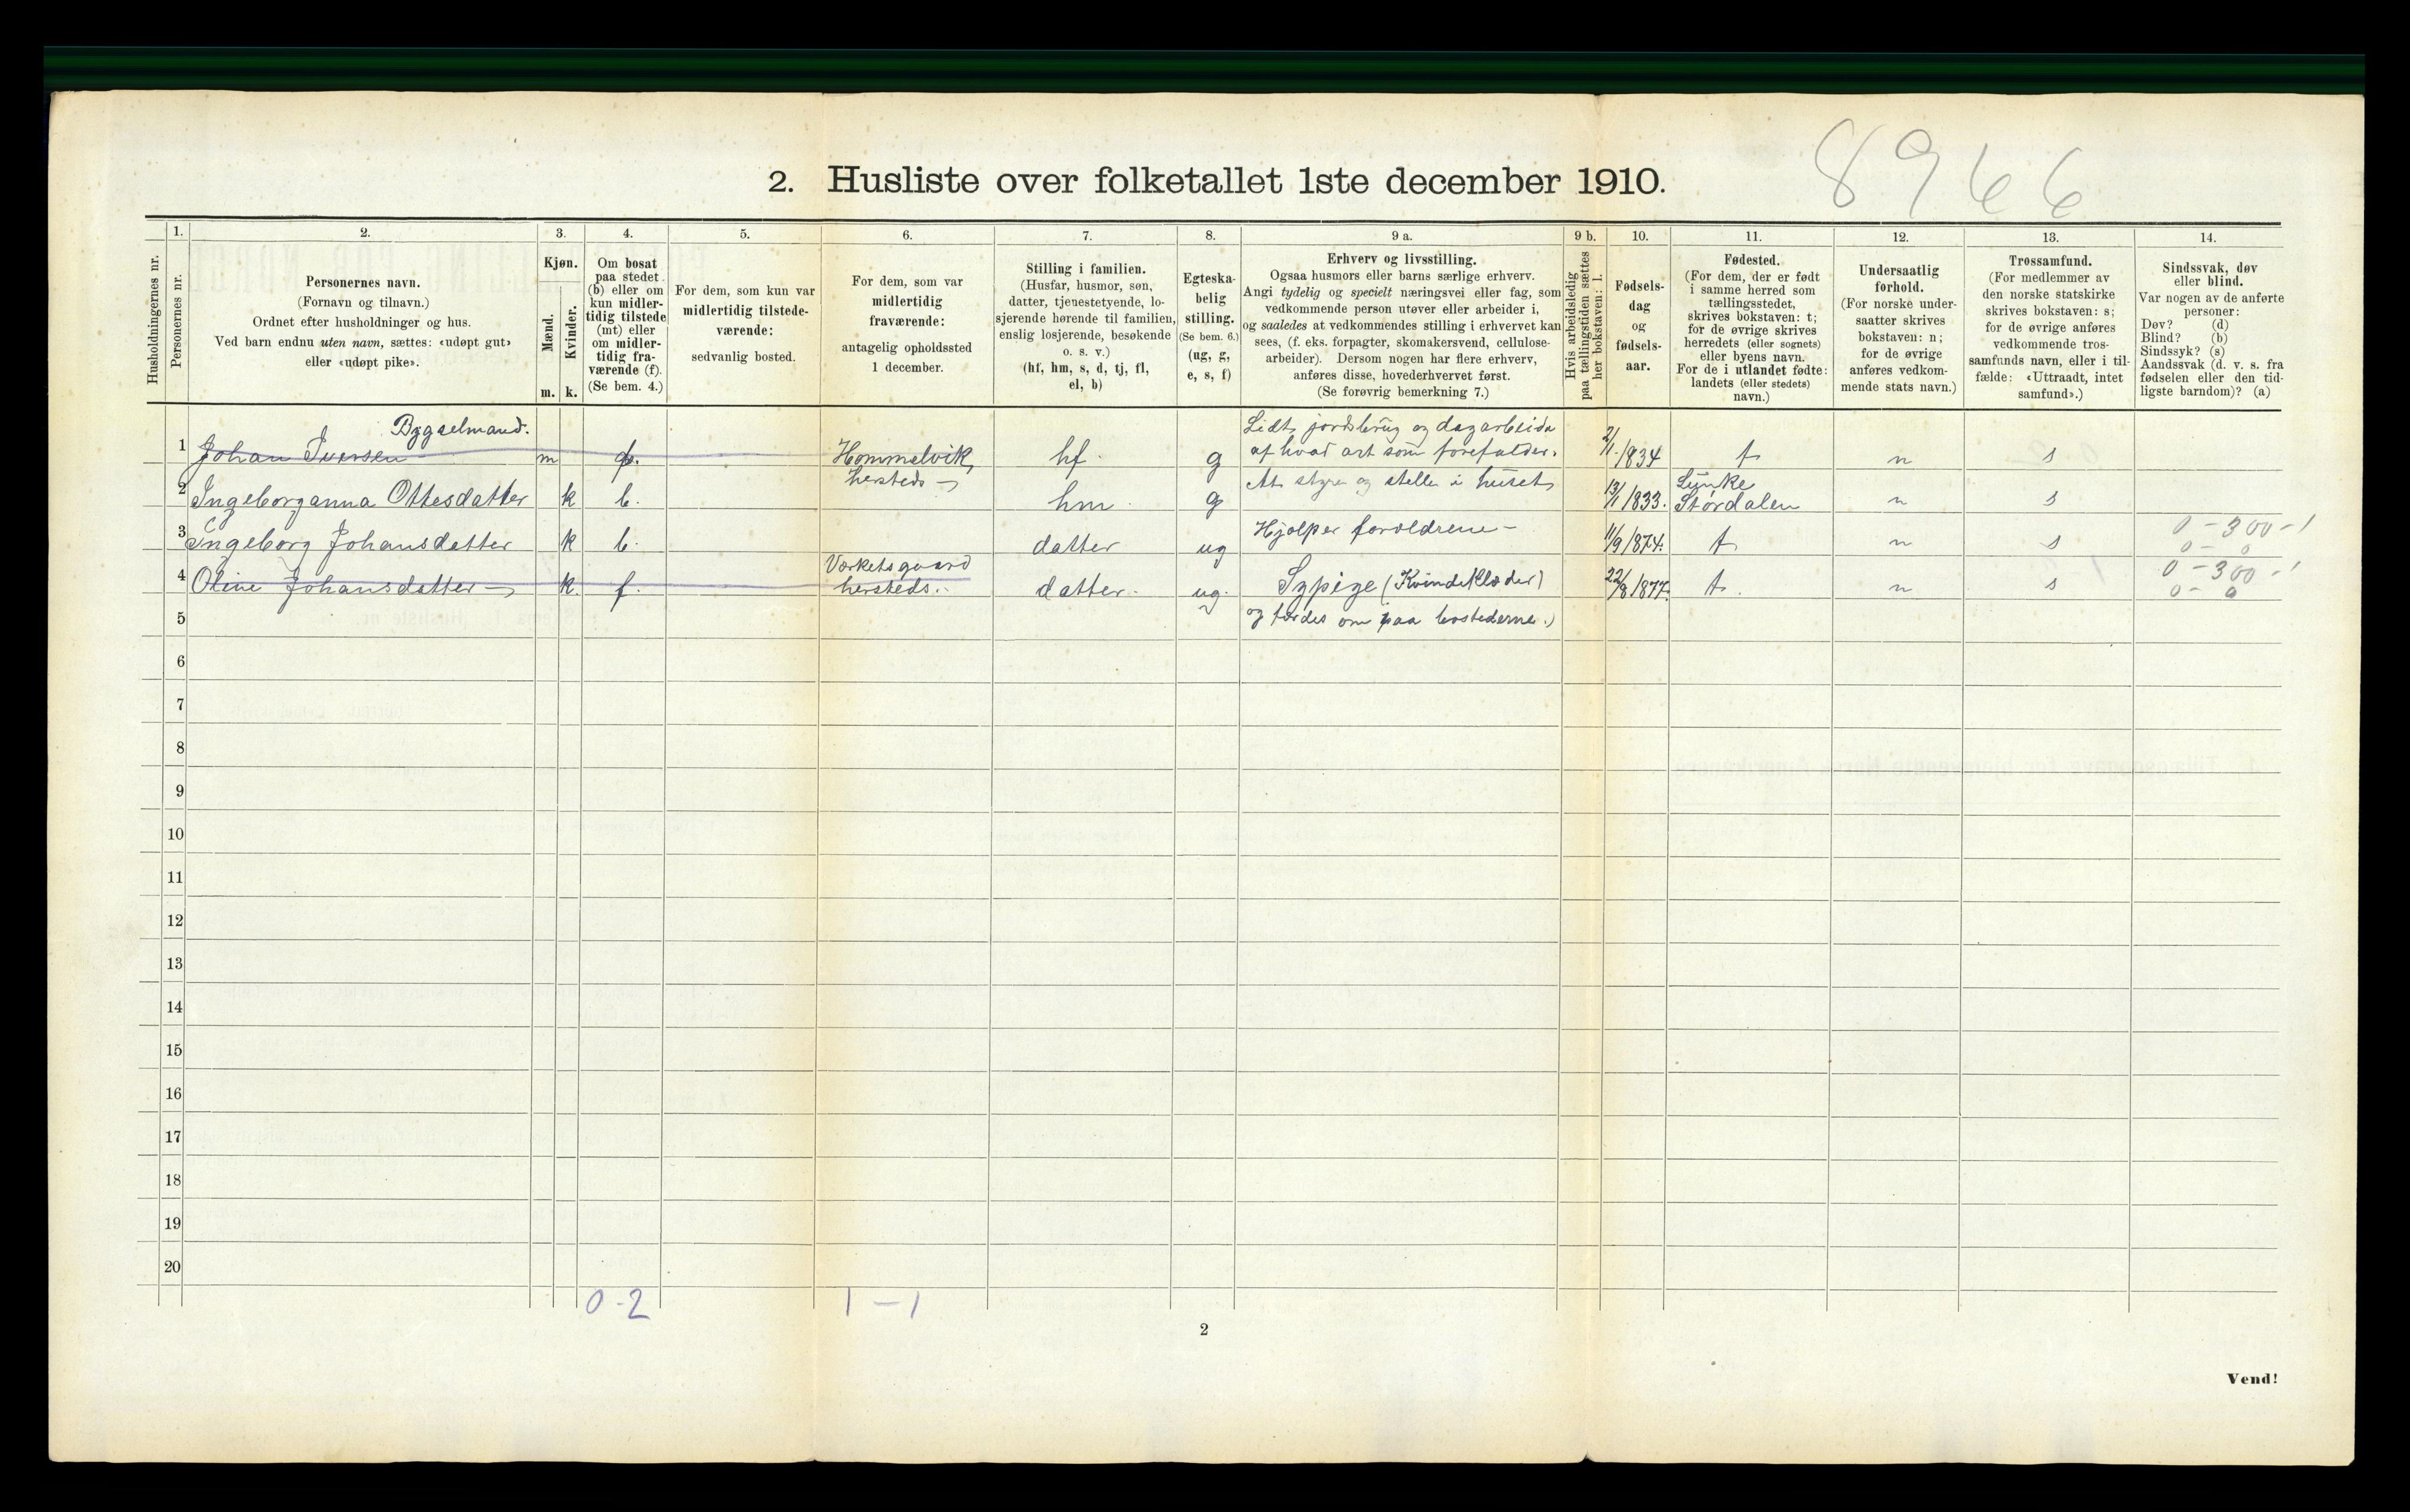 8966
2. Husliste over folketallet 1ste december 1910.
Husholdningernes nr.
1.
Personernes nr.
2.
Personernes navn.
(Fornavn og tilnavn.)
Ordnet efter husholdninger og hus.
Ved barn endnu uten navn, sættes: «udøpt gut»
eller «udøpt pike».
3.
Kjøn.
Mænd.
Kvinder.
m. k.
4.
Om bosat
paa stedet
(b) eller om
kun midler-
tidig tilstede
(mt) eller
om midler-
tidig fra-
værende (f).
(Se bem. 4.)
5.
For dem, som kun var
midlertidig tilstede-
værende:
sedvanlig bosted.
6.
For dem, som var
midlertidig
fraværende:
antagelig opholdssted
1 december.
7.
Stilling i familien.
(Husfar, husmor, søn,
datter, tjenestetyende, lo-
sjerende hørende til familien,
enslig losjerende, besøkende
o. s. v.)
(hf, hm, s, d, tj, fl,
el, b)
8.
Egteska-
belig
stilling.
(Se bem. 6.)
(ug, g,
e, s, f)
9 a.
Erhverv og livsstilling.
Ogsaa husmors eller barns særlige erhverv.
Angi tydelig og specielt næringsvei eller fag, som
vedkommende person utøver eller arbeider i,
og saaledes at vedkommendes stilling i erhvervet kan
sees, (f. eks. forpagter, skomakersvend, cellulose-
arbeider). Dersom nogen har flere erhverv,
anføres disse, hovederhvervet først.
(Se forøvrig bemerkning 7.)
9 b.
Hvis arbeidsledig
paa tællingstiden sættes
her bokstaven: l.
10.
Fødsels-
dag
og
fødsels-
aar.
11.
Fødested.
(For dem, der er født
i samme herred som
tællingsstedet,
skrives bokstaven: t;
for de øvrige skrives
herredets (eller sognets)
eller byens navn.
For de i utlandet fødte:
landets (eller stedets)
navn.)
12.
Undersaatlig
forhold.
(For norske under-
saatter skrives
bokstaven: n;
for de øvrige
anføres vedkom-
mende stats navn.)
13.
Trossamfund.
(For medlemmer av
den norske statskirke
skrives bokstaven: s;
for de øvrige anføres
vedkommende tros-
samfunds navn, eller i til-
fælde: «Uttraadt, intet
samfund».)
14.
Sindssvak, døv
eller blind.
Var nogen av de anførte
personer:
Døv? (d)
Blind? (b)
Sindssyk? (s)
Aandssvak (d. v. s. fra
fødselen eller den tid-
ligste barndom)? (a)
Bygselmand. Lidt jordbrug og dagarbeide
1 Johan Iversen m f. Hommelvik, hf. g af hvad art som forefalder. 2/1 1834 t n s
hersteds At styre og stelle i huset Lunke
2 Ingeborganna Ottesdatter k b. hm. g 13/1 1833. Stördalen n s
3 Ingeborg Johansdatter k b. datter ug Hjælper forældrene 11/9 1874. t n s 0-300-1
0-0
Værketsgaard
4 Oline Johansdatter k. f. hersteds. datter. ug. Sypige (Kvindeklæder) 22/8 1877. t. n s 0-300-1
0-0
5 og færdes om paa bostederne.)
6
7
8
9
10
11
12
13
14
15
16
17
18
19
20
0-2 1-1
2
Vend!